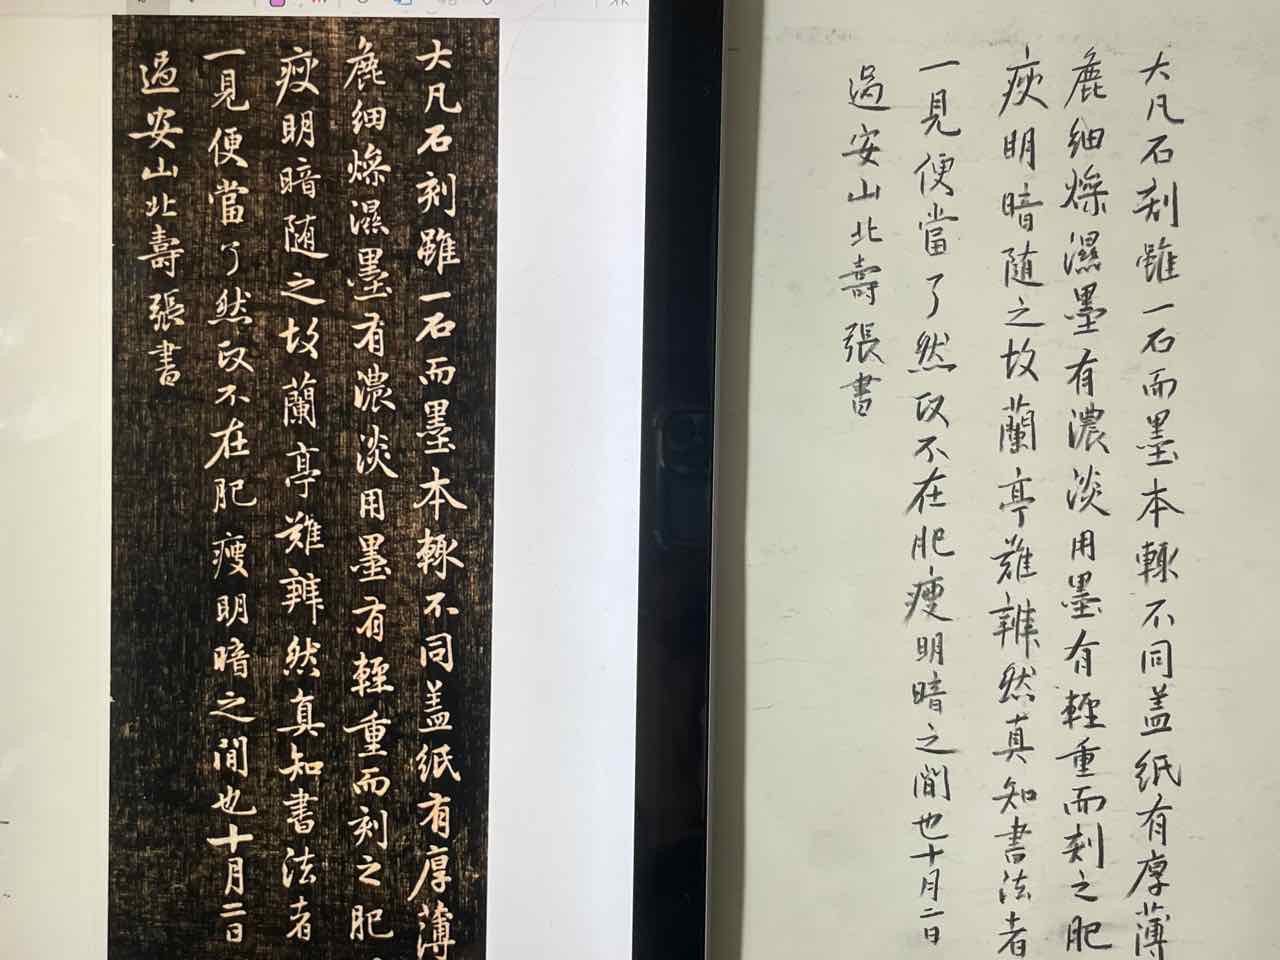 大凡石刻雖一石而墨本輙不同盖紙有厚薄
麁細燥濕墨有濃淡用墨有輕重而刻之肥
瘦明暗随之故蘭亭難辨然真知書法者
一見便當了然政不在肥瘦明暗之間也十月二日
過安山北壽張書
大凡石刻雖一石而墨本輙不同盖紙有厚薄
麁細燥濕墨有濃淡用墨有輕重而刻之肥
瘦明暗随之故蘭亭難辨然真知書法者
一見便當了然政不在肥瘦明暗之間也十月二日
過安山北壽張書